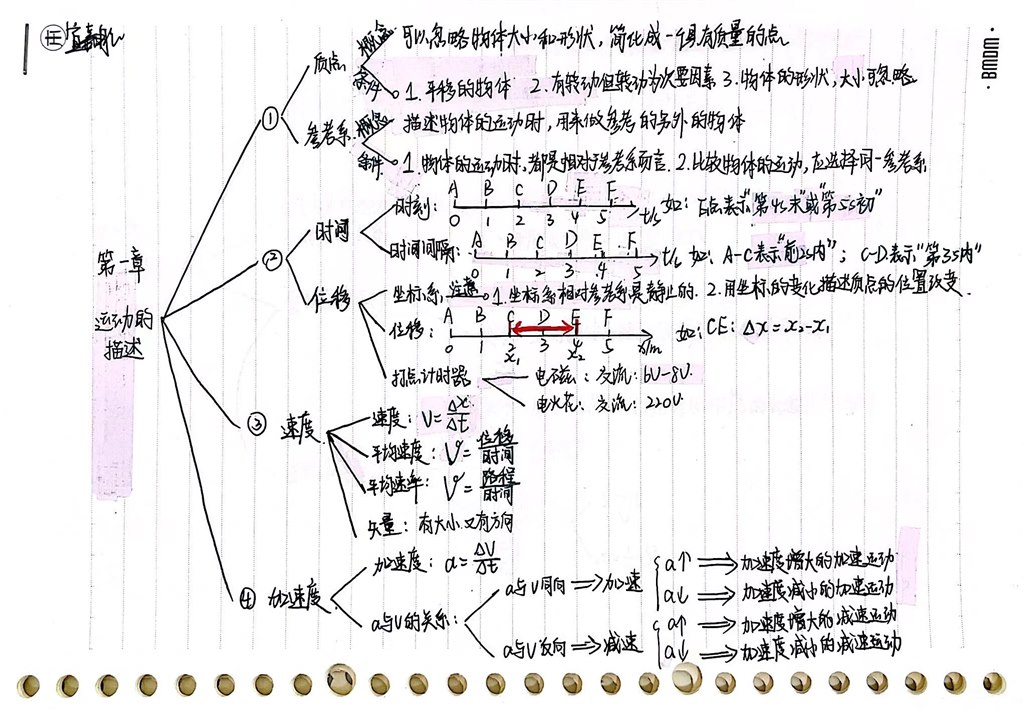 BMDM
第一章
运动的
描述
① 质点 概念 可以忽略物体大小和形状，简化成一个具有质量的点
条件 1. 平移的物体 2. 有转动但转动为次要因素 3. 物体的形状，大小可忽略
参考系 概念 描述物体的运动时，用来做参考的另外的物体
条件 1. 物体的运动时，都是相对于参考系而言. 2. 比较物体的运动，应选择同一参考系
② 时间 时刻: A B C D E F
0 1 2 3 4 5 t/s 如: E点表示"第4s末"或"第5s初"
时间间隔: A B C D E F
0 1 2 3 4 5 t/s 如: A-C表示"前2s内"; C-D表示"第3s内"
位移 坐标系 注意 1. 坐标系相对参考系是静止的. 2. 用坐标的变化描述质点的位置改变.
位移: A B C D E F
0 1 2 3 4 5 x/m 如: CE: Δx=x₂-x₁
x₁ x₂
打点计时器 电磁: 交流: 6V-8V.
电火花: 交流: 220V.
③ 速度 速度: V=Δx/Δt
平均速度: V=位移/时间
平均速率: V=路程/时间
矢量: 有大小又有方向
④ 加速度 加速度: a=ΔV/Δt
a与V的关系: a与V同向⇒加速 a↑ ⇒ 加速度增大的加速运动
a↓ ⇒ 加速度减小的加速运动
a与V反向⇒减速 a↑ ⇒ 加速度增大的减速运动
a↓ ⇒ 加速度减小的减速运动